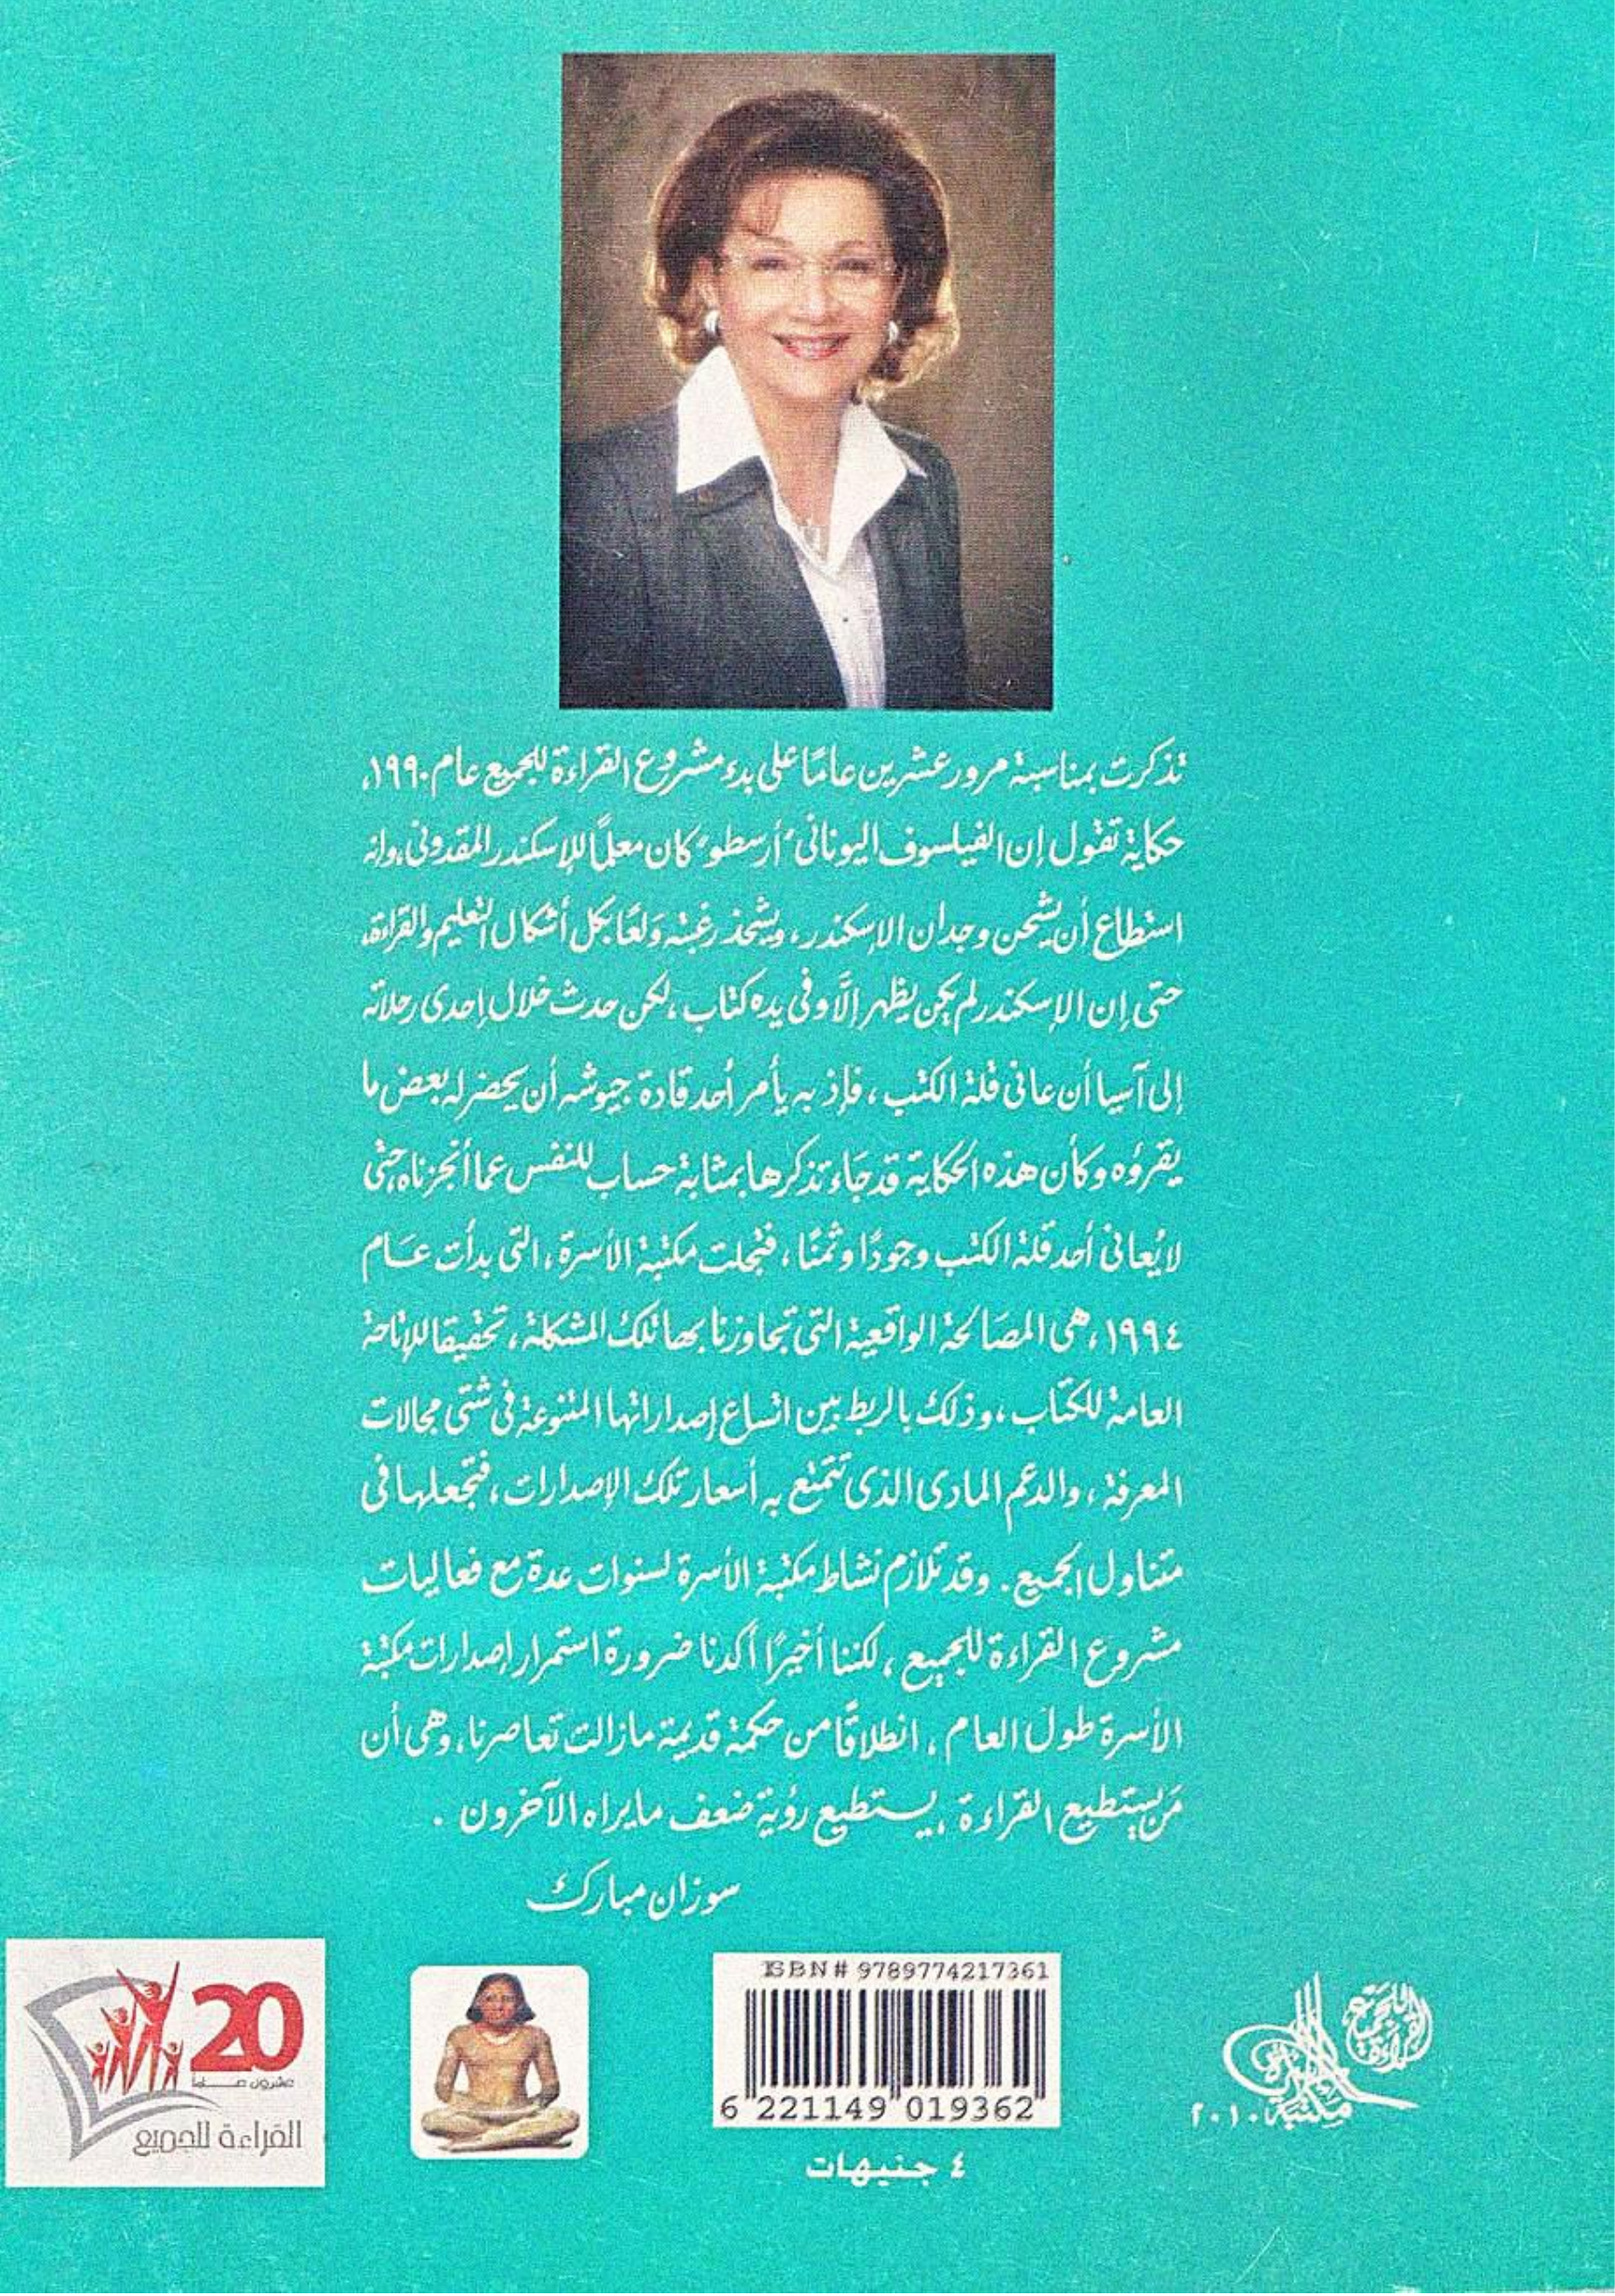 تذكرت بمناسبة مرور عشرين عامًا على بدء مشروع القراءة للجميع عام ١٩٩٠،
حكاية تقول إن الفيلسوف اليونانى "أرسطو" كان معلمًا للإسكندر المقدونى، وانه
استطاع أن يشحن وجدان الإسكندر، ويشحذ رغبته وَلعًا بكل أشكال التعليم والقراءة،
حتى إن الإسكندر لم يكن يظهر إلَّا وفى يده كتاب، لكن حدث خلال إحدى رحلاته
إلى آسيا أن عانى قلة الكتب، فإذ به يأمر أحد قادة جيوشه أن يحضر له بعض ما
يقرؤه وكأن هذه الحكاية قد جَاء تذكرها بمثابة حساب للنفس عما أنجزناه حتى
لا يُعانى أحد قلة الكتب وجودًا وثمنًا، فتجلت مكتبة الأسرة، التى بدأت عَام
١٩٩٤، هى المصَالحة الواقعية التى تجاوزنا بها تلك المشكلة، تحقيقا للإتاحة
العامة للكتاب، وذلك بالربط بين اتساع إصداراتها المتنوعة فى شتى مجالات
المعرفة، والدعم المادى الذى تتمتع به أسعار تلك الإصدارات، فتجعلها فى
متناول الجميع. وقد تلازم نشاط مكتبة الأسرة لسنوات عدة مع فعاليات
مشروع القراءة للجميع، لكننا أخيرًا أكدنا ضرورة استمرار إصدارات مكتبة
الأسرة طول العام، انطلاقًا من حكمة قديمة مازالت تعاصرنا، وهى أن
مَن يستطيع القراءة، يستطيع رؤية ضعف مايراه الآخرون.
سوزان مبارك
20
عشرون عـــاما
القراءة للجميع
ISBN# 9789774217361
6 221149 019362
٤ جنيهات
القراءة للجميع
مكتبة الأسرة
٢٠١٠